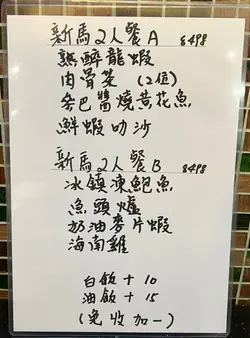 新馬2人餐A $498
熟醉龍蝦
肉骨茶 (2位)
叁巴醬燒黃花魚
鮮蝦叻沙
新馬2人餐B $498
冰鎮凍鮑魚
魚頭爐
奶油麥片蝦
海南雞
白飯+10
油飯+15
(免收加一)